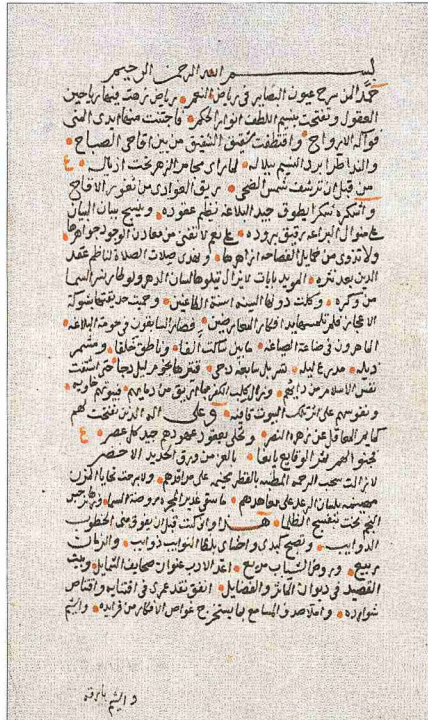 بسم الله الرحمن الرحيم
حمدا لمن سرح عيون البصاير في رياض النعم رياض نزهت فيها رياحين
العقول وتفتحت بنسيم اللطف انوار الحكم فاجتنت منها ايدي المنى
فواكه الارواح واقتطفت شقيق الشقيق من بين اقاحي الصباح
والندا ظرا برد النسيم بلاله لما راى مجامر الزهر تحت اذياله ع
من قبل ان ترشف شمس الضحى ريق الغوادي من ثغور الاقاح
واشكره شكرا يطوق جيد البلاغة نظيم عقوده وينسج بنان البيان
على منوال البراعة رقيق بروده على نعم لا تفنى من معادن الوجود جواهرها
ولا تذوى من خمايل الفصاحة ازاهرها ونهدي صلات الصلاة لناظم عقد
الدين بعد نثره المويد بايات لا تزال تتلوها لسان الدهر ولو طار نسر السما
من وكره وكلت دونها السنة اسنة الطاعنين وحميت حديقتها بشوكة
الاعجاز فلم تلمسها يد افكار المعارضين فصار السابقون في حومة البلاغة
الماهرون في صناعة الصياغة ما بين ساكت الفا وناطق خلفا ومشمر
ذيله مدرع ليله تسربل سابغة دجى فنزعها فجر ليل دجا حتى اشتفت
نفس الاسلام من دائهم ونال الكلب الكفر جام الريق من دمايهم فبيوتهم خاوية
ونفوسهم على اثر تلك البيوت قافية وعلى اله الذين تفتحت لهم
كمايم المعاقل عن زهرة النصر وتحلى بعقود عهودهم جيد كل عصر ع
لجنوا لهم ثمر الوقايع يانعا بالعز من ورق الحديد الاخضر
لا زالت سحب الرحمة المطنبة بالقطر مخيمة على مراقدهم ولا برحت تحايا المزن
مصنفه بلسان الرعد على معاهدهم ما سقى غدير المجرة روضة السما وزهار جيد
النجم تحت بنفسج الظلما هذا وانى كنت قبل ان يفوق منى الخطوب
الذوايب وتصبح كبدي واحشاي بلظا النوايب ذوايب والزمان
ربيع وروض الشباب مريع اعد الادب عنوان صحايف الشمايل وبيت
القصيد في ديوان المآثر والفضايل انفق نقد عمري في اقتنايه واقتناص
شوارده واملا صدف المسامع بما يستخرج غواص الافكار من فرايده واشيم
واشيم بارقه